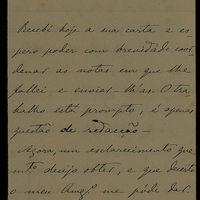 Recebi hoje a sua carta e es-
pero poder com brevidade coor-
denar as notas em que lhe
fallei e enviar-lh'as. O tra-
balho está prompto, é apenas
questão de redacção—
Agora, um esclarecimento que
mto desejo obter, e que decerto
o meu Amgº me póde dar.